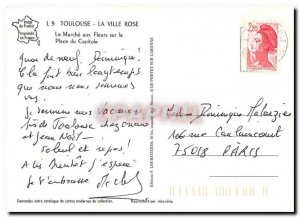 Image de France
Imprimée en France
L 9 TOULOUSE - LA VILLE ROSE
Le Marché aux Fleurs sur la
Place du Capitole
Quoi de neuf Dominique!
Cela fait bien longtemps
que nous nous sommes
vus.
Je termine mes vacances
près de Toulouse
et Jean Noël.
Soleil et repos!
A bientôt j'espère
Je t'embrasse Michel
2,20
Madame Dominique
106 rue Caulaincourt
75018 PARIS
Demandez notre catalogue de cartes modernes de collection.
Reproduction interdite